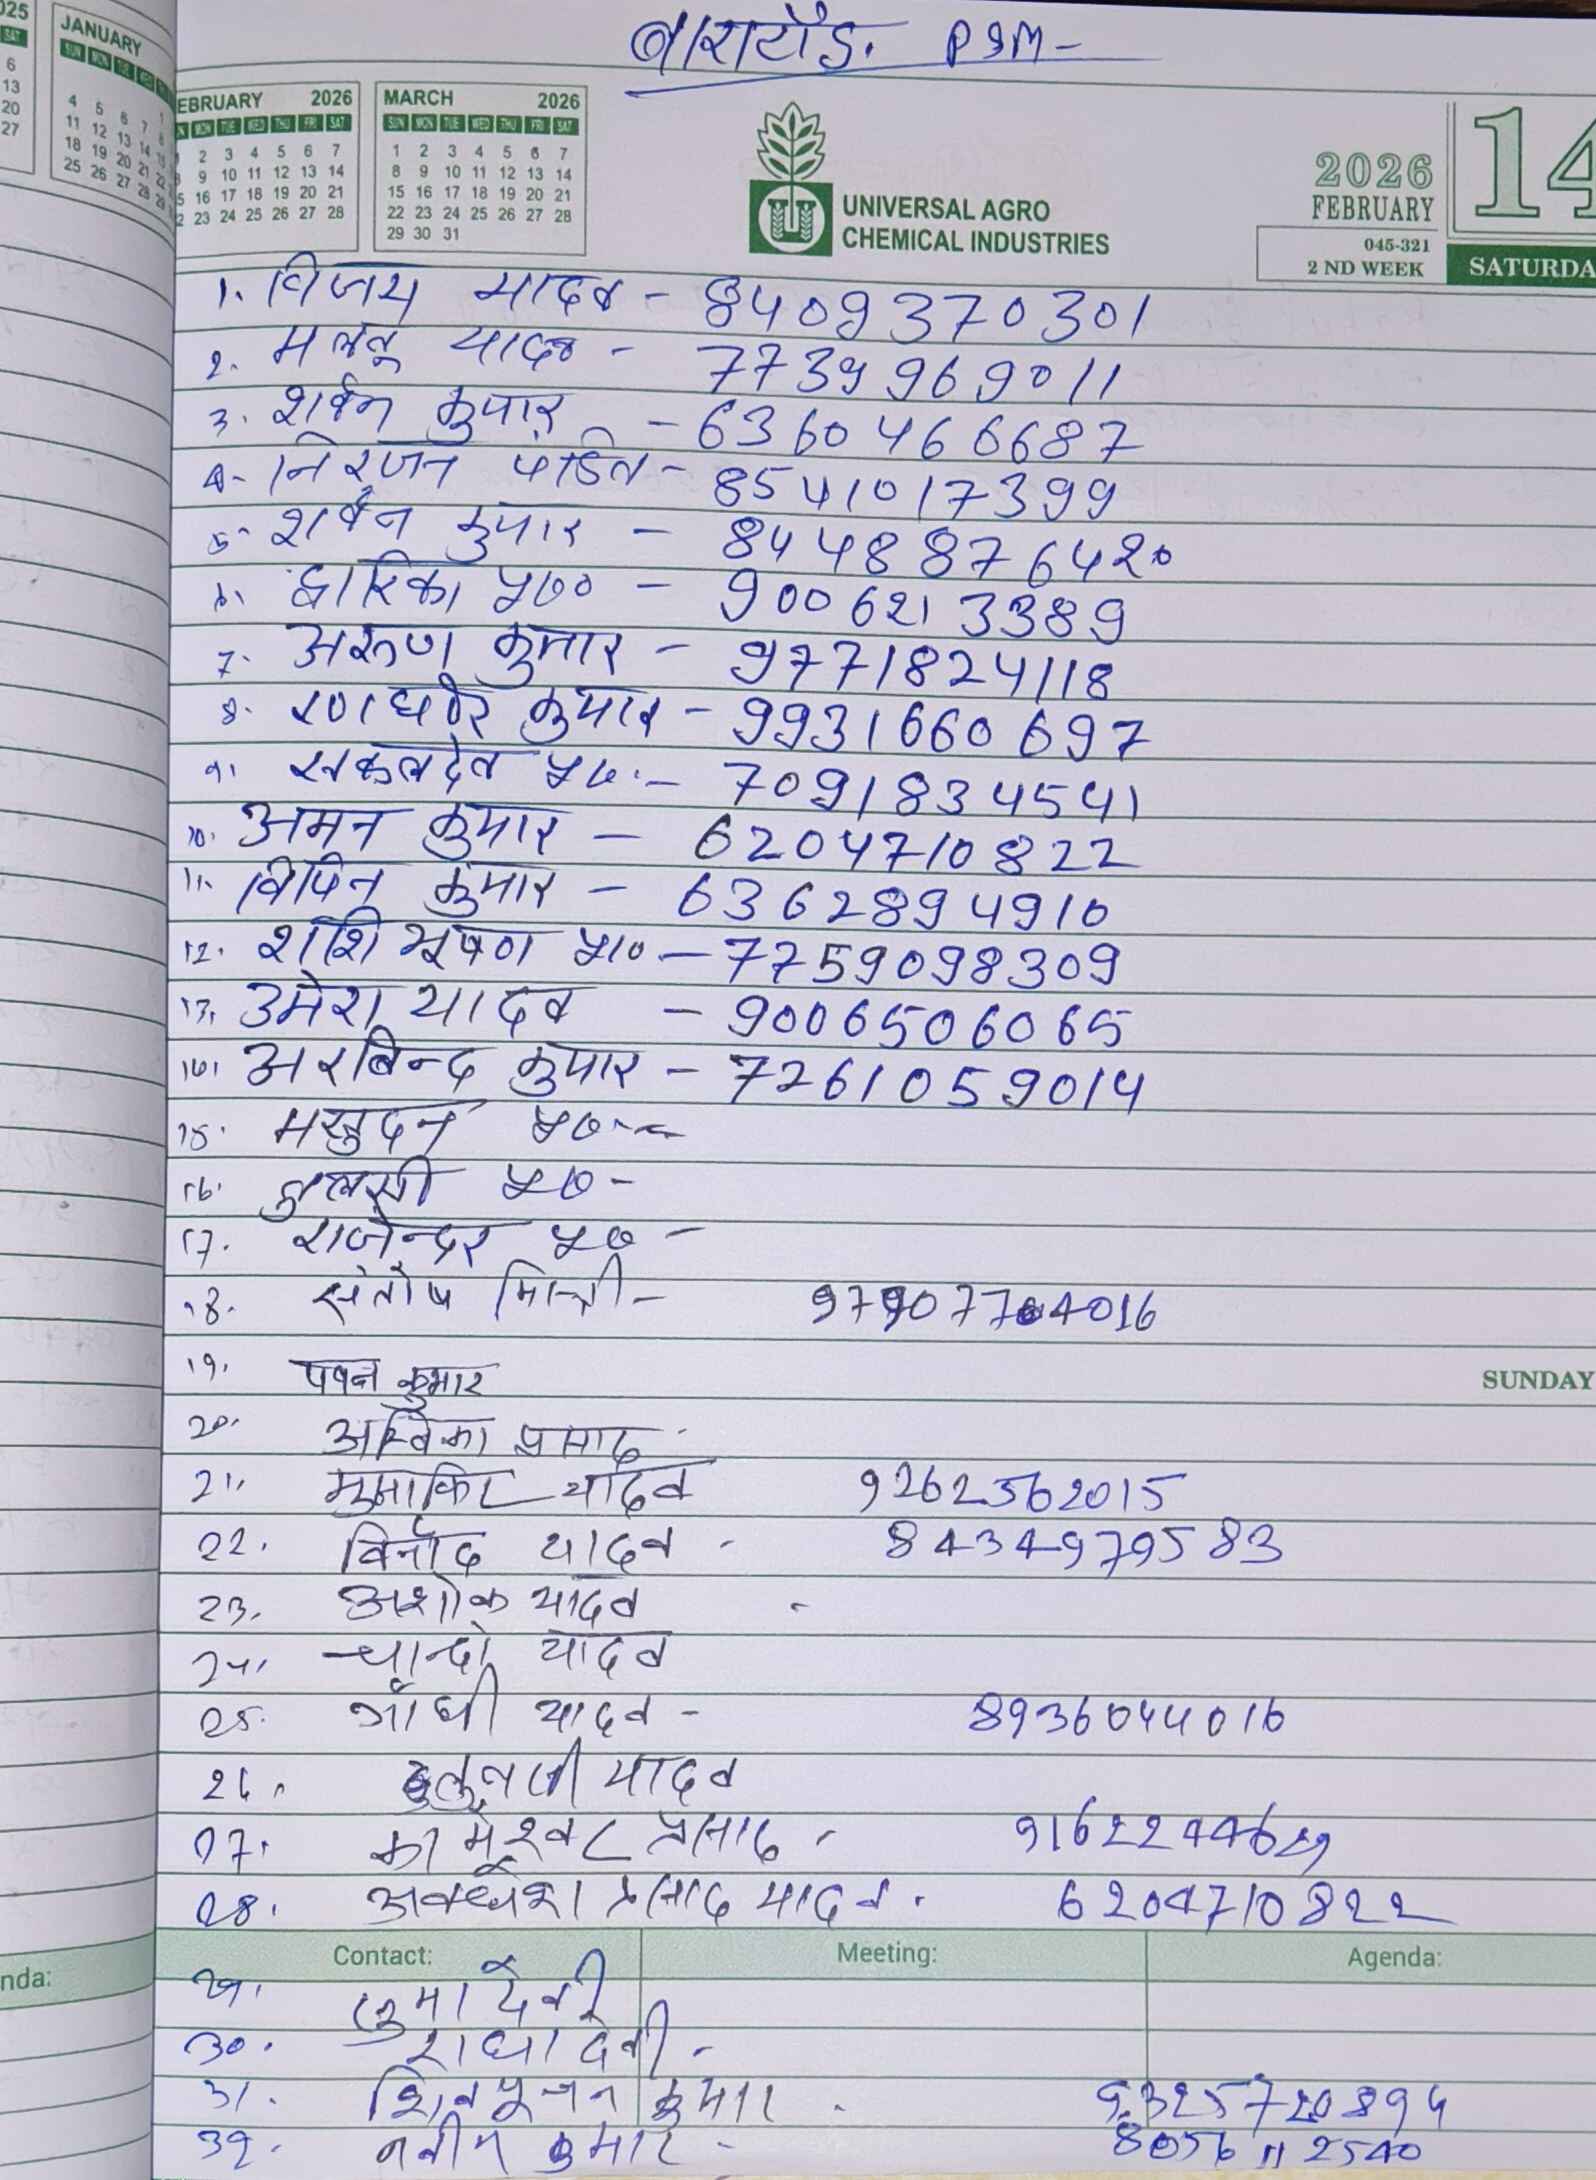 बाराटॉड. PSM-
025
SAT
6
13
20
27
JANUARY
SUN MON TUE WED
4 5 6 7 8
11 12 13 14 15
18 19 20 21 22
25 26 27 28 29
EBRUARY 2026
MON TUE WED THU FRI SAT
1 2 3 4 5 6 7
8 9 10 11 12 13 14
5 16 17 18 19 20 21
2 23 24 25 26 27 28
MARCH 2026
SUN MON TUE WED THU FRI SAT
1 2 3 4 5 6 7
8 9 10 11 12 13 14
15 16 17 18 19 20 21
22 23 24 25 26 27 28
29 30 31
UNIVERSAL AGRO
CHEMICAL INDUSTRIES
2026
FEBRUARY
045-321
2 ND WEEK
14
SATURDA
1. विजय यादव - 8409370301
2. यादव - 7739969011
3. शर्वन कुमार - 6360466687
4- निरंजन पंडित - 8541017399
5- शर्वन कुमार - 8448876420
6. द्वारिका - 9006213389
7- अरूण कुमार - 9771824118
8- रणधीर कुमार - 9931660697
9. सकलदेव - 7091834541
10. अमन कुमार - 6204710822
11. विपिन कुमार - 6362894910
12. शशि भूषण - 7759098309
13. उमेश यादव - 9006506065
14. अरबिन्द कुमार - 7261059014
15. मसुदन
16. तुलसी
17. राजेन्दर
18. संतोष मिस्त्री -
19. पवन कुमार
SUNDAY
20. अम्बिका प्रसाद
21. मुसाफिर यादव 9262562015
22. विनोद यादव - 8434979583
23. अशोक यादव -
24. चान्दो यादव
25. गाँधी यादव - 8936044016
26. यादव
27. कामेश्वर प्रसाद - 9162244629
28. अवधेश प्रसाद यादव. 6204710822
Contact: Meeting: Agenda:
nda:
29. देवी
30. राधा देवी -
31. शिवपूजन कुमार -
32. नवीन कुमार - 8056112540